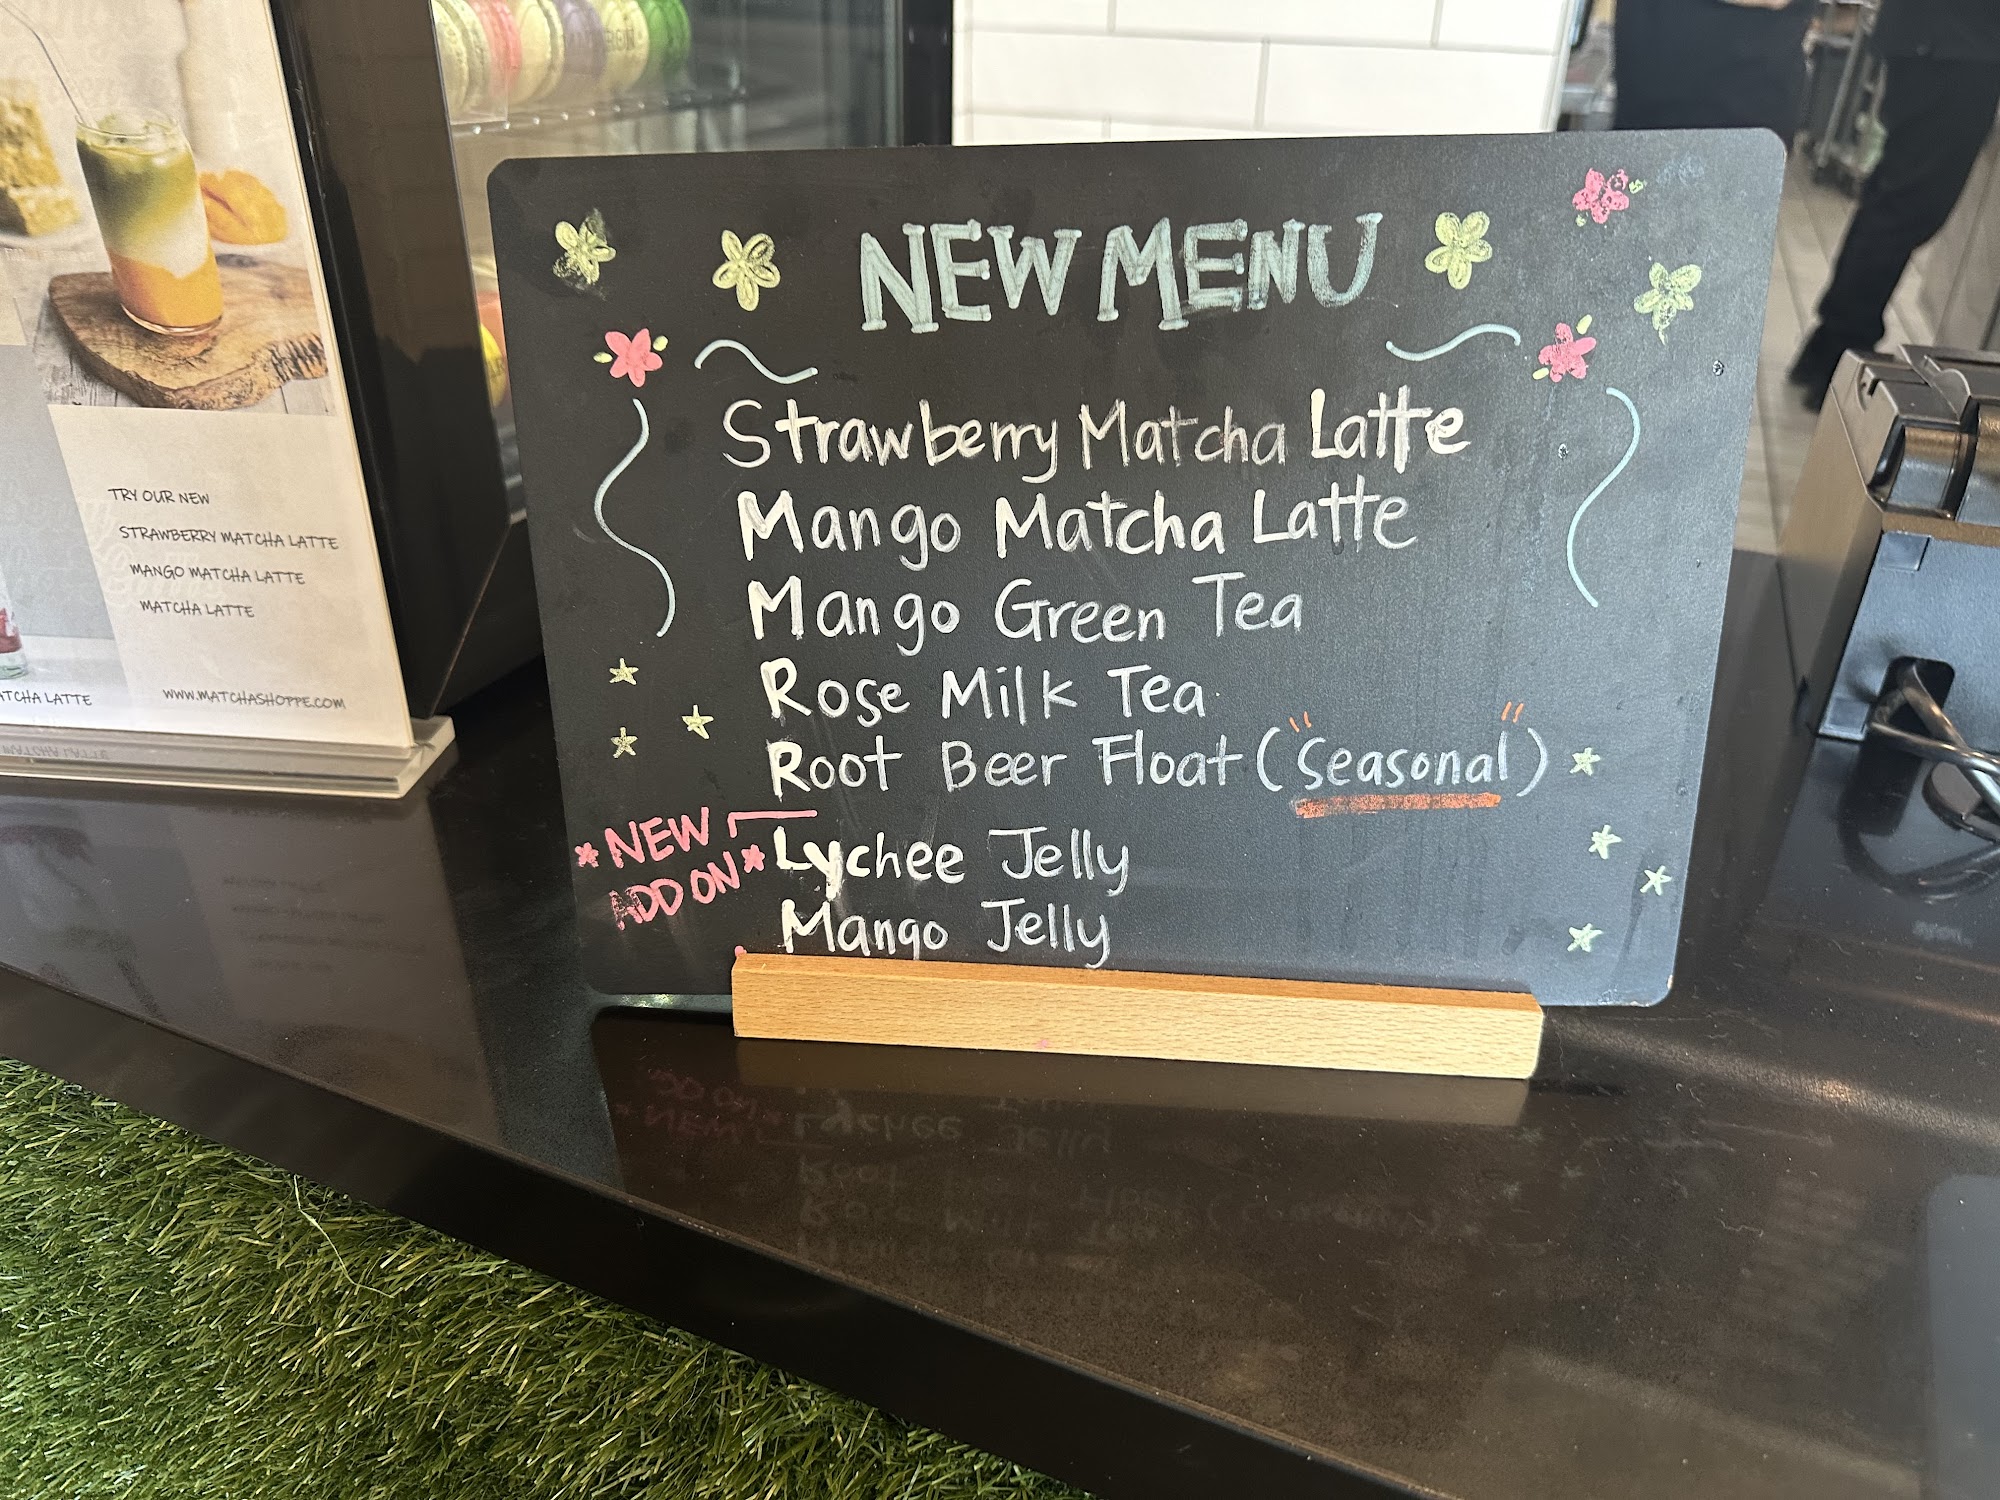 NEW MENU
Strawberry Matcha Latte
Mango Matcha Latte
Mango Green Tea
Rose Milk Tea
Root Beer Float ("Seasonal")
*NEW
ADD ON*
Lychee Jelly
Mango Jelly
TRY OUR NEW
STRAWBERRY MATCHA LATTE
MANGO MATCHA LATTE
MATCHA LATTE
ATCHA LATTE
WWW.MATCHASHOPPE.COM